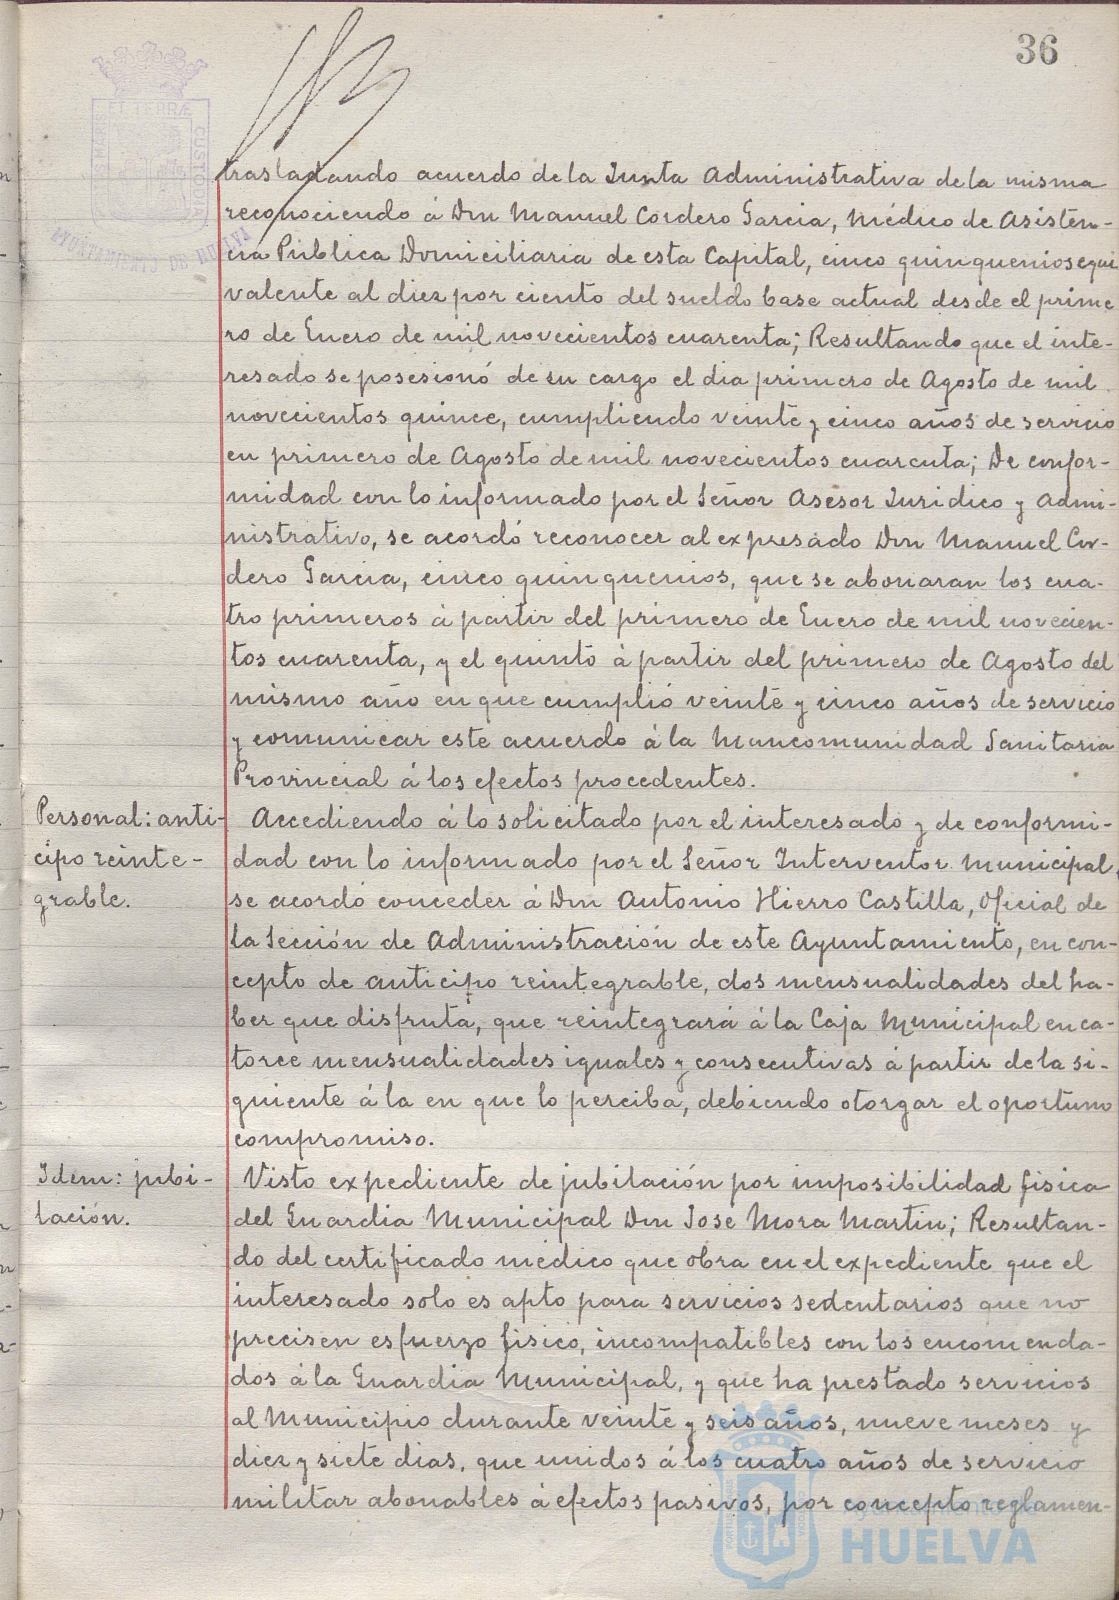 36
trasladando acuerdo de la Junta Administrativa de la misma
reconociendo á Don Manuel Cordero Garcia, Médico de Asisten-
cia Pública Domiciliaria de esta Capital, cinco quinquenios equi
valente al diez por ciento del sueldo base actual desde el prime
ro de Enero de mil novecientos cuarenta; Resultando que el inte-
resado se posesionó de su cargo el dia primero de Agosto de mil
novecientos quince, cumpliendo veinte y cinco años de servicio
en primero de Agosto de mil novecientos cuarenta; De confor-
midad con lo informado por el Señor Asesor Juridico y Admi-
nistrativo, se acordó reconocer al expresado Don Manuel Cor-
dero Garcia, cinco quinquenios, que se abonaran los cua-
tro primeros á partir del primero de Enero de mil novecien-
tos cuarenta, y el quinto á partir del primero de Agosto del
mismo año en que cumplió veinte y cinco años de servicio
y comunicar este acuerdo á la Mancomunidad Sanitaria
Provincial á los efectos procedentes.
Personal: anti-
cipo reinte-
grable.
Accediendo á lo solicitado por el interesado y de conformi-
dad con lo informado por el Señor Interventor Municipal,
se acordó conceder á Don Antonio Hierro Castilla, Oficial de
la Sección de Administración de este Ayuntamiento, en con-
cepto de anticipo reintegrable, dos mensualidades del ha-
ber que disfruta, que reintegrará á la Caja Municipal en ca-
torce mensualidades iguales y consecutivas á partir de la si-
guiente á la en que lo perciba, debiendo otorgar el oportuno
compromiso.
Idem: jubi-
lación.
Visto expediente de jubilación por imposibilidad fisica
del Guardia Municipal Don Jose Mora Martin; Resultan-
do del certificado médico que obra en el expediente que el
interesado solo es apto para servicios sedentarios que no
precisen esfuerzo fisico, incompatibles con los encomenda-
dos á la Guardia Municipal, y que ha prestado servicios
al Municipio durante veinte y seis años, nueve meses y
diez y siete dias, que unidos á los cuatro años de servicio
militar abonables á efectos pasivos, por concepto reglamen-
Ayuntamiento de
HUELVA
ET TERRÆ
CUSTODIA
AYUNTAMIENTO DE HUELVA